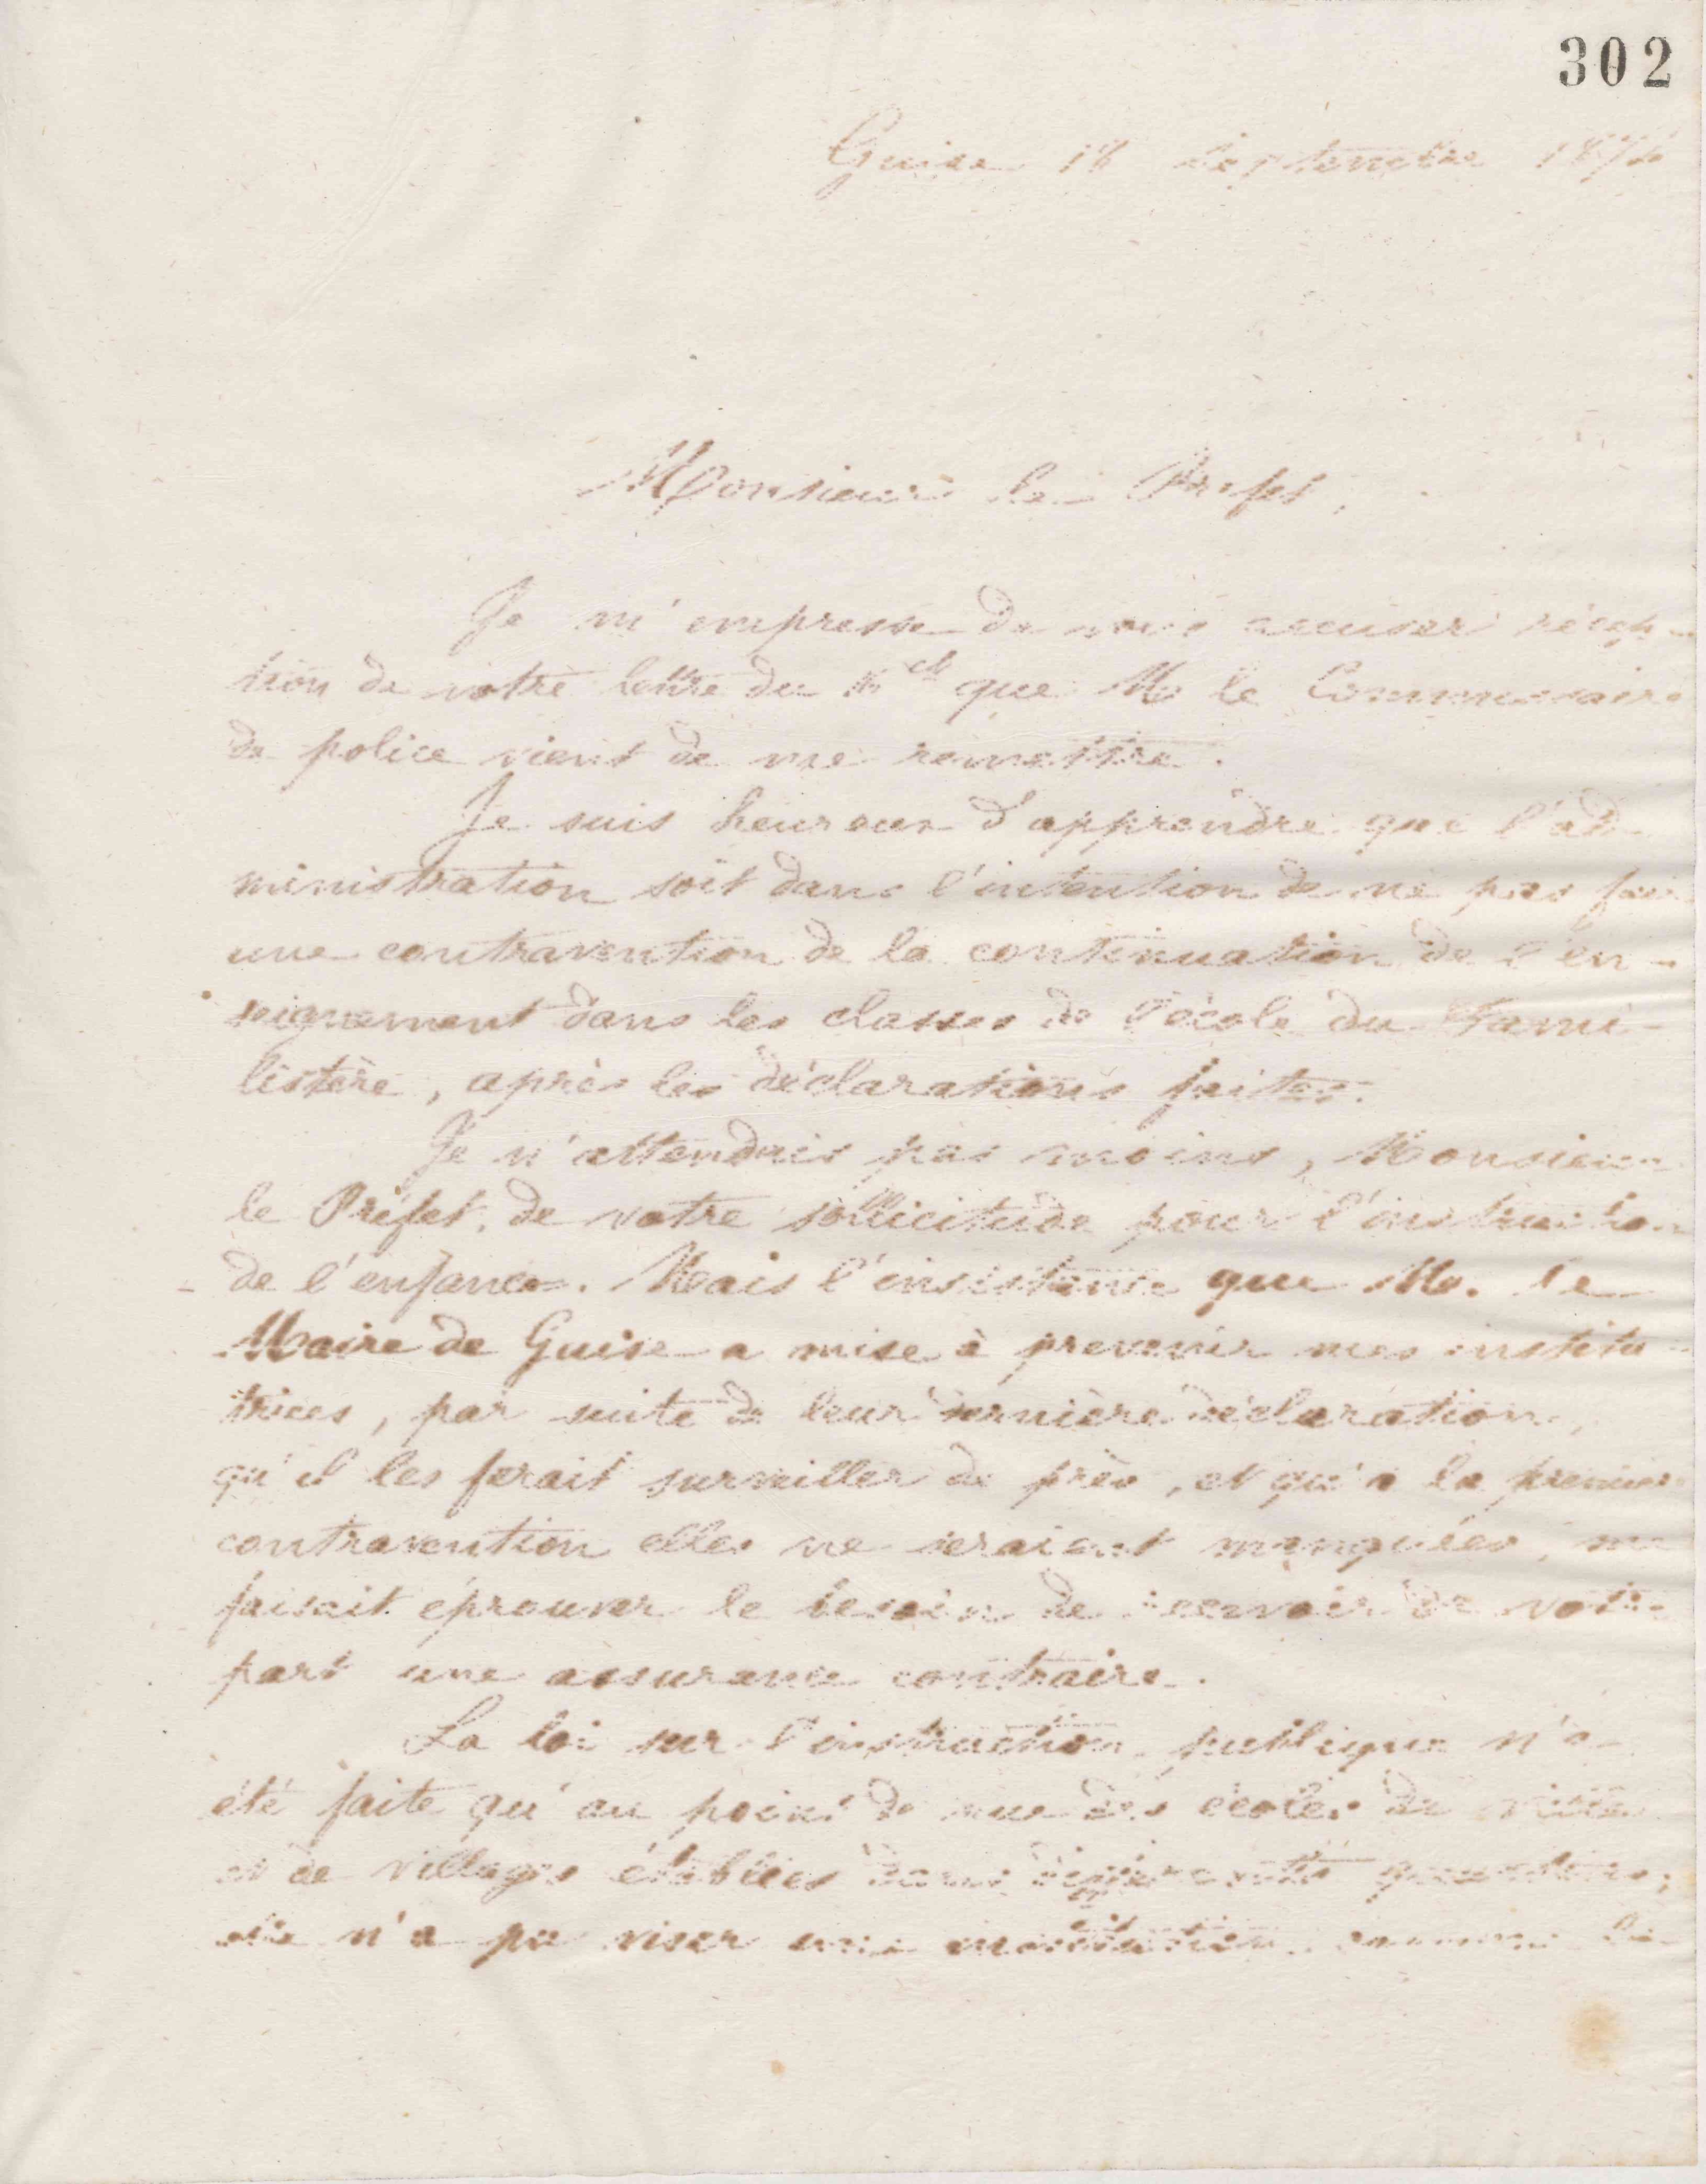 302
Guise 18 Septembre 187
Monsieur le Préfet,
Je m'empresse de vous accuser récep-
tion de votre lettre du 16 ct que M. le Commissaire
de police vient de me remettre.
Je suis heureux d'apprendre que l'ad-
ministration soit dans l'intention de ne pas faire
une contravention de la continuation de l'en-
seignement dans les classes de l'école du Fami-
listère, après les déclarations faites.
Je n'attendais pas moins, Monsieur
le Préfet, de votre sollicitude pour l'instruction
de l'enfance. Mais l'insistance que M. le
Maire de Guise a mise à prevenir mes institu-
trices, par suite de leur dernière déclaration,
qu'il les ferait surveiller de près, et qu'à la première
contravention elles ne seraient manquées, me
faisait éprouver le besoin de recevoir de votre
part une assurance contraire.
La loi sur l'instruction publique n'a
été faite qu'au point de vue des écoles de villes
et de villages établies dans
elle n'a pu viser une institution comme la